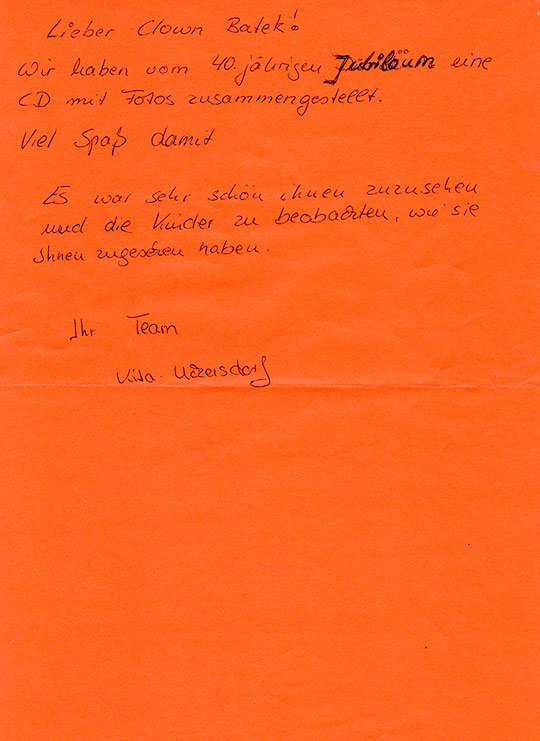 Lieber Clown Batek!
Wir haben vom 40. jährigen Jubiläum eine
CD mit Fotos zusammengestellt.
Viel Spaß damit
Es war sehr schön ihnen zuzusehen
und die Kinder zu beobachten, wie sie
Ihnen zugesehen haben.
Ihr Team
Kita